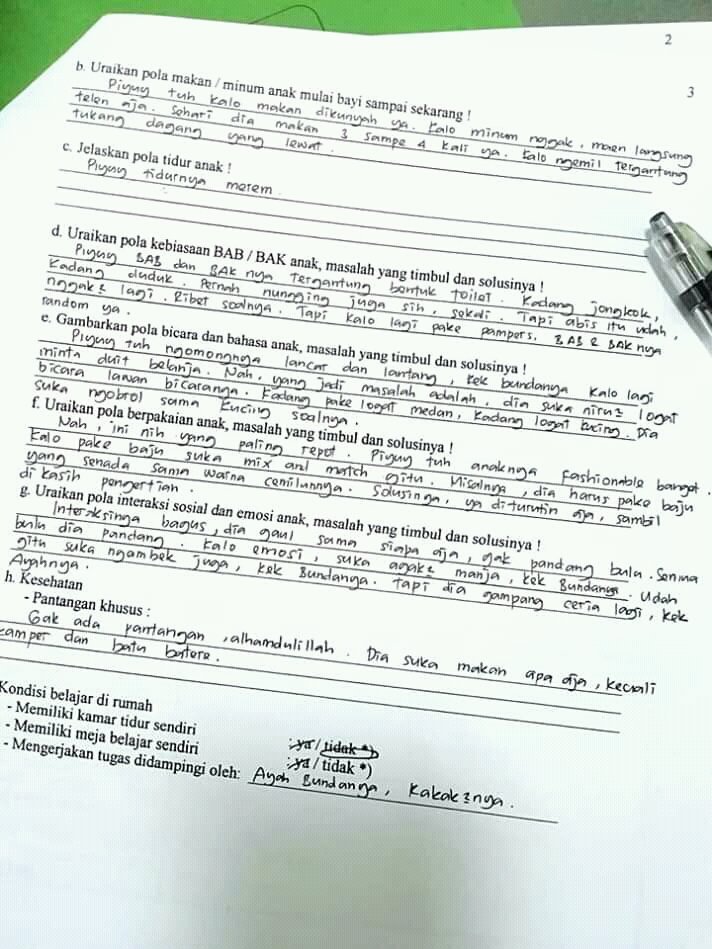 2
3
b. Uraikan pola makan / minum anak mulai bayi sampai sekarang !
Piyuy tuh kalo makan dikunyah ya. Kalo minum nggak, maen langsung
telen aja. Sehari dia makan 3 sampe 4 kali ya. Kalo ngemil tergantung
tukang dagang yang lewat.
c. Jelaskan pola tidur anak !
Piyuy tidurnya merem.
d. Uraikan pola kebiasaan BAB / BAK anak, masalah yang timbul dan solusinya !
Piyuy BAB dan BAK nya tergantung bentuk toilet. Kadang jongkok,
kadang duduk. Pernah nungging juga sih, sekali. Tapi abis itu udah,
nggak2 lagi. Ribet soalnya. Tapi kalo lagi pake pampers, BAB & BAK nya
random ya.
e. Gambarkan pola bicara dan bahasa anak, masalah yang timbul dan solusinya !
Piyuy tuh ngomongnya lancar dan lantang, kek bundanya kalo lagi
minta duit belanja. Nah, yang jadi masalah adalah, dia suka niru2 logat
bicara lawan bicaranya. Kadang pake logat medan, kadang logat kucing. Dia
suka ngobrol sama kucing soalnya.
f. Uraikan pola berpakaian anak, masalah yang timbul dan solusinya !
Nah, ini nih yang paling repot. Piyuy tuh anaknya fashionable banget.
Kalo pake baju suka mix and match gitu. Misalnya, dia harus pake baju
yang senada sama warna cemilunnya. Solusinya, ya diturutin aja, sambil
di kasih pengertian.
g. Uraikan pola interaksi sosial dan emosi anak, masalah yang timbul dan solusinya !
Interaksinya bagus, dia gaul sama siapa aja, gak pandang bulu. Semua
bulu dia pandang. Kalo emosi, suka agak2 manja, kek Bundanya. Udah
gitu suka ngambek juga, kek Bundanya. Tapi dia gampang ceria lagi, kek
Ayahnya.
h. Kesehatan
- Pantangan khusus :
Gak ada pantangan, alhamdulillah. Dia suka makan apa aja, kecuali
camper dan batu batere.
Kondisi belajar di rumah
- Memiliki kamar tidur sendiri : ya / tidak *)
- Memiliki meja belajar sendiri : ya / tidak *)
- Mengerjakan tugas didampingi oleh: Ayah Bundanya, Kakak2nya.